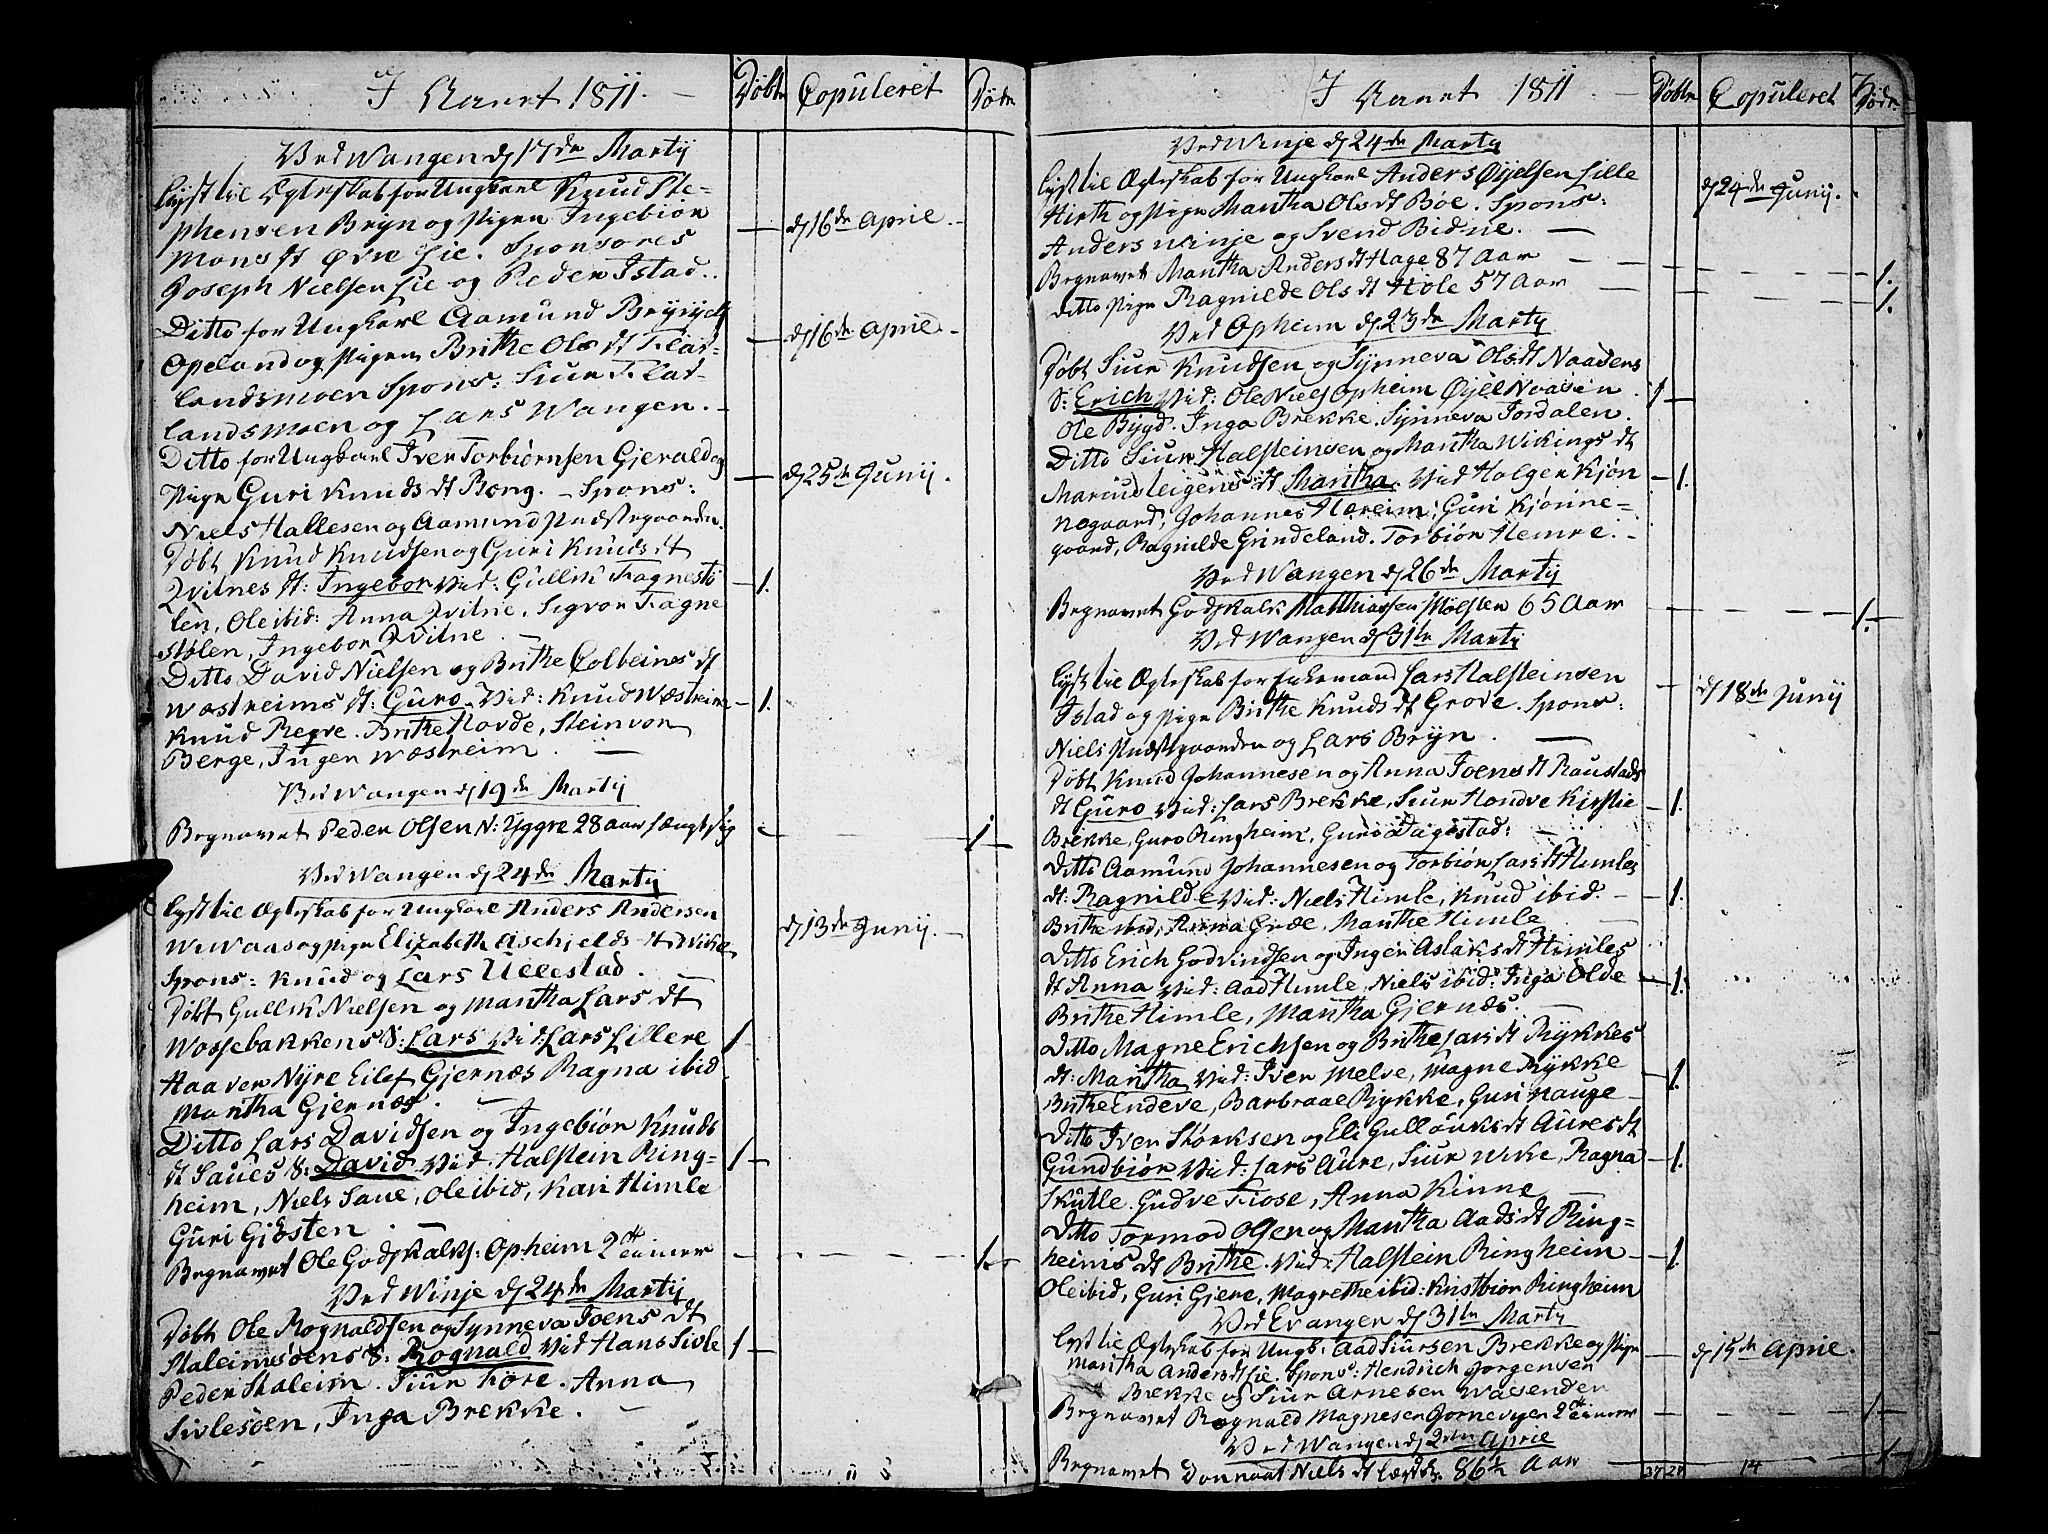 I Aaret 1811. Döbte Copuleret Döde
Ved Wangen d 17de Martij
Lyst til Egteskab for Ungkarl Knud Ste-
phensen Bryn og Pigen Ingebiör
Mons dt Övre Lie. Sponsores
Joseph Nielsen Lie og Peder Istad.
d 16de April
Ditto for Ungkarl Aamund
Opeland og Pigen Brithe Ols dt Flat-
landsmoen Spons: Siur Flat-
landsmoen og Lars Wangen.
d 16de April
Ditto for Ungkarl Iver Torbiörnsen Gjerald og
Pigen Guri Knuds dt Rong. Spons:
Niels Hallesen og Aamund Præstegaarden.
d 25de Junij.
Döbt Knud Knudsen og Guri Knuds dt
Qvitnes dt: Ingebor Vid: Gullik Fagnestö
len, Ole ibid: Anna Qvitne, Sigvor Fagne
stölen, Ingebor Qvitne
1.
Ditto David Nielsen og Brithe Colbeins dt
Wæstreims dt: Guro. Vid: Knud Wæstreim 1.
Knud Regve. Brithe Hovde, Steinvor
Berge, Inger Wæstreim.
Ved Wangen d 19de Martij
Begravet Peder Olsen N: Yggre 28 aar 1
Ved Wangen d 24de Martij
Lyst til Egteskab for Ungkarl Anders Andersen
og Pigen Elizabeth dt Wike
Spons: Knud og Lars Ullestad.
d 13de Junij.
Döbt Gullik Nielsen og Martha Lars dt
Wossebakkens S: Lars Vid: Lars Lillere 1
Haaver Nyre Eilef Gjernæs Ragna ibid
Martha Gjernæs.
Ditto Lars Davidsen og Ingebiör Knuds
dt Saues S: David Vid: Halstein Ring- 1
heim, Niels Saue, Ole ibid, Kari Himle
Guri Gjösten
Begravet Ole Godskalks: Opheim 1.
Ved Winje d 24de Martij
Döbt Ole Rognaldsen og Synneva Joens dt
Staleimsöens S: Rognald Vid Hans Sivle 1
Peder Staleim. Siur Före. Anna
Sivlesöen, Inga Brekke.
I Aaret 1811. Döbte Copuleret Döde
Ved Winje d 24de Martij
Lyst til Egteskab for Ungkarl Anders Öyelsen Lille
Hirth og Pigen Martha Ols dt Böe. Spons:
Anders Winje og Svend Bidne.
d 24de Junij.
Begravet Martha Anders dt Hage 87 Aar 1.
Ditto Pigen Ragnilde Ols dt Hole 57 Aar 1.
Ved Opheim d 23de Martij
Döbt Siur Knudsen og Synneva Ols dt Naadens
S: Erich Vid: Ole Niels Opheim Öyel Noasen 1
Ole Bygd. Inga Brekke. Synneva Jordalen.
Ditto Siur Halsteinsen og Martha Wikings dt
dt Martha. Vid Holger Kjön 1.
negaard, Johannes Haereim, Guri Kjönne-
gaard, Ragnilde Grindeland. Torbiör Hemre.
Ved Wangen d 26de Martij
Begravet Godskalk Matthiassen Mölster 65 Aar 1.
Ved Wangen d 31te Martij
Lyst til Egteskab for Enkemand Lars Halsteinsen
Istad og Pigen Brithe Knuds dt Grove. Spons:
Niels Præstegaarden og Lars Bryn.
d 18de Junij
Döbt Knud Johannesen og Anna Joens dt Raustads
dt Guro Vid: Lars Brekke, Siur Hondve Kirstie 1.
Brekke, Guro Ringheim, Guro Dagestad:
Ditto Aamund Johannesen og Torbiör Lars dt Himles
dt: Ragnilde Vid: Niels Himle, Knud ibid. 1.
Brithe ibid, Anna Græe, Marthe Himle
Ditto Erich Godvindsen og Inger Aslaks dt Himles
dt Anna Vid: Aad Himle, Niels ibid: Inga Olde 1.
Brithe Himle, Martha Gjernæs.
Ditto Magne Erichsen og Brithe Lars dt Rykkes
dt: Martha Vid: Iver Melve, Magne Rykke 1.
Brithe Endeve, Barbraae Rykke, Guri Hauge
Ditto Iver Störksen og Eli Gulleiks dt Aures dt
Gundbiör Vid: Lars Aure, Siur Wike, Ragna 1.
Skutle. Gudve Fiose, Anna Kinne
Ditto Tormod Olsen og Martha Aads dt Ring-
heims dt Brithe. Vid: Halstein Ringheim 1.
Ole ibid, Guri Gjere, Magrethe ibid: Kristbiör Ringheim
Ved Evanger d 31te Martij
Lyst til Egteskab for Ungk: Aad Siursen Brekke og Pigen
Martha Anders dt Lie. Spons: Hendrich Jörgensen
Brekke og Siur Arnesen Wasenden
d 15de April.
Begravet Rognald Magnesen 1
Ved Wangen d 2den April
Begravet Niels dt 86½ Aar 1
37 27 14